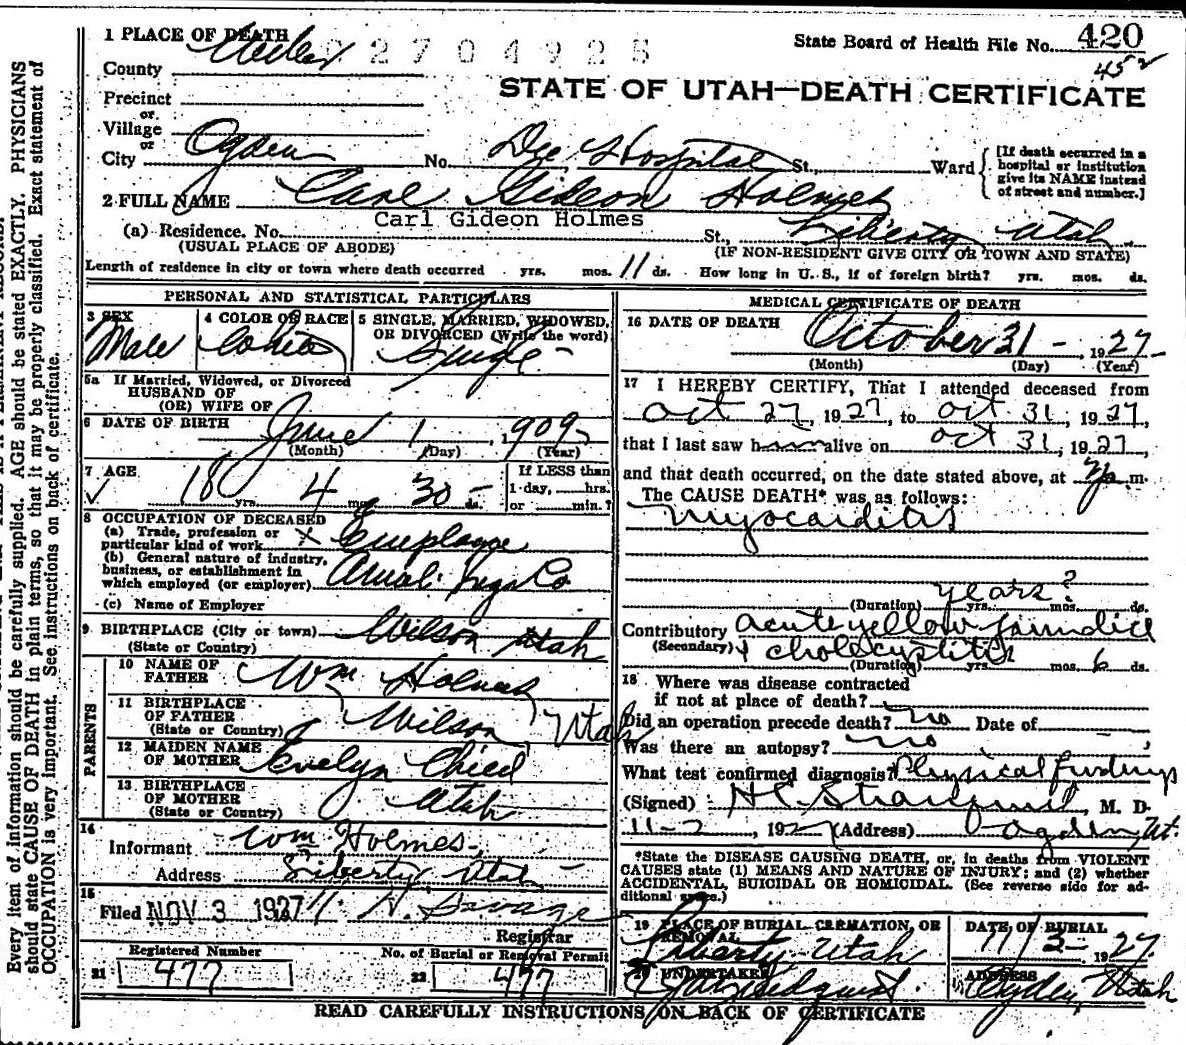 1 PLACE OF DEATH 2704925 State Board of Health File No. 420
County Weber 45
STATE OF UTAH—DEATH CERTIFICATE
Precinct
or
Village
or
City Ogden No. Dee Hospital St., Ward
[If death occurred in a
hospital or institution
give its NAME instead
of street and number.]
2 FULL NAME Carl Gideon Holmes
Carl Gideon Holmes
(a) Residence. No. St., Liberty Utah
(USUAL PLACE OF ABODE) (IF NON-RESIDENT GIVE CITY OR TOWN AND STATE)
Length of residence in city or town where death occurred yrs. mos. 11 ds. How long in U. S., if of foreign birth? yrs. mos. ds.
PERSONAL AND STATISTICAL PARTICULARS
3 SEX
Male
4 COLOR OR RACE
White
5 SINGLE, MARRIED, WIDOWED,
OR DIVORCED (Write the word)
Single
5a If Married, Widowed, or Divorced
HUSBAND OF
(OR) WIFE OF
6 DATE OF BIRTH June 1, 1909
(Month) (Day) (Year)
7 AGE If LESS than
18 yrs. 4 mos. 30 ds. 1 day, hrs.
or min.?
8 OCCUPATION OF DECEASED
(a) Trade, profession or
particular kind of work X Employee
(b) General nature of industry,
business, or establishment in
which employed (or employer) Amal. Sugar Co
(c) Name of Employer
9 BIRTHPLACE (City or town) Wilson Utah
(State or Country)
PARENTS
10 NAME OF
FATHER Wm Holmes
11 BIRTHPLACE
OF FATHER Wilson, Utah
(State or Country)
12 MAIDEN NAME
OF MOTHER Evelyn Child
13 BIRTHPLACE
OF MOTHER Utah
(State or Country)
14
Informant Wm Holmes
Address Liberty Utah
15
Filed NOV 3 1927 Savage
Registrar
Registered Number No. of Burial or Removal Permit
21 477 22 477
MEDICAL CERTIFICATE OF DEATH
16 DATE OF DEATH October 31 - , 1927
(Month) (Day) (Year)
17 I HEREBY CERTIFY, That I attended deceased from
Oct 27, 1927, to Oct 31, 1927,
that I last saw h alive on Oct 31, 1927,
and that death occurred, on the date stated above, at m.
The CAUSE DEATH* was as follows:
Myocarditis
years?
(Duration) yrs. mos. ds.
Contributory acute yellow jaundice
(Secondary) & cholecystitis
(Duration) yrs. mos. 6 ds.
18 Where was disease contracted
if not at place of death?
Did an operation precede death? no Date of
Was there an autopsy? no
What test confirmed diagnosis? Physical findings
(Signed) M. D.
11-2, 1927 (Address) Ogden, Ut.
*State the DISEASE CAUSING DEATH, or, in deaths from VIOLENT
CAUSES state (1) MEANS AND NATURE OF INJURY; and (2) whether
ACCIDENTAL, SUICIDAL OR HOMICIDAL. (See reverse side for ad-
ditional space.)
19 PLACE OF BURIAL CREMATION, OR
REMOVAL
Liberty Utah
DATE OF BURIAL
11/3- 1927.
20 UNDERTAKER
Lindquist.
ADDRESS
Ogden, Utah
READ CAREFULLY INSTRUCTIONS ON BACK OF CERTIFICATE
Every item of information should be carefully supplied. AGE should be stated EXACTLY. PHYSICIANS
should state CAUSE OF DEATH in plain terms, so that it may be properly classified. Exact statement of
OCCUPATION is very important. See instructions on back of certificate.